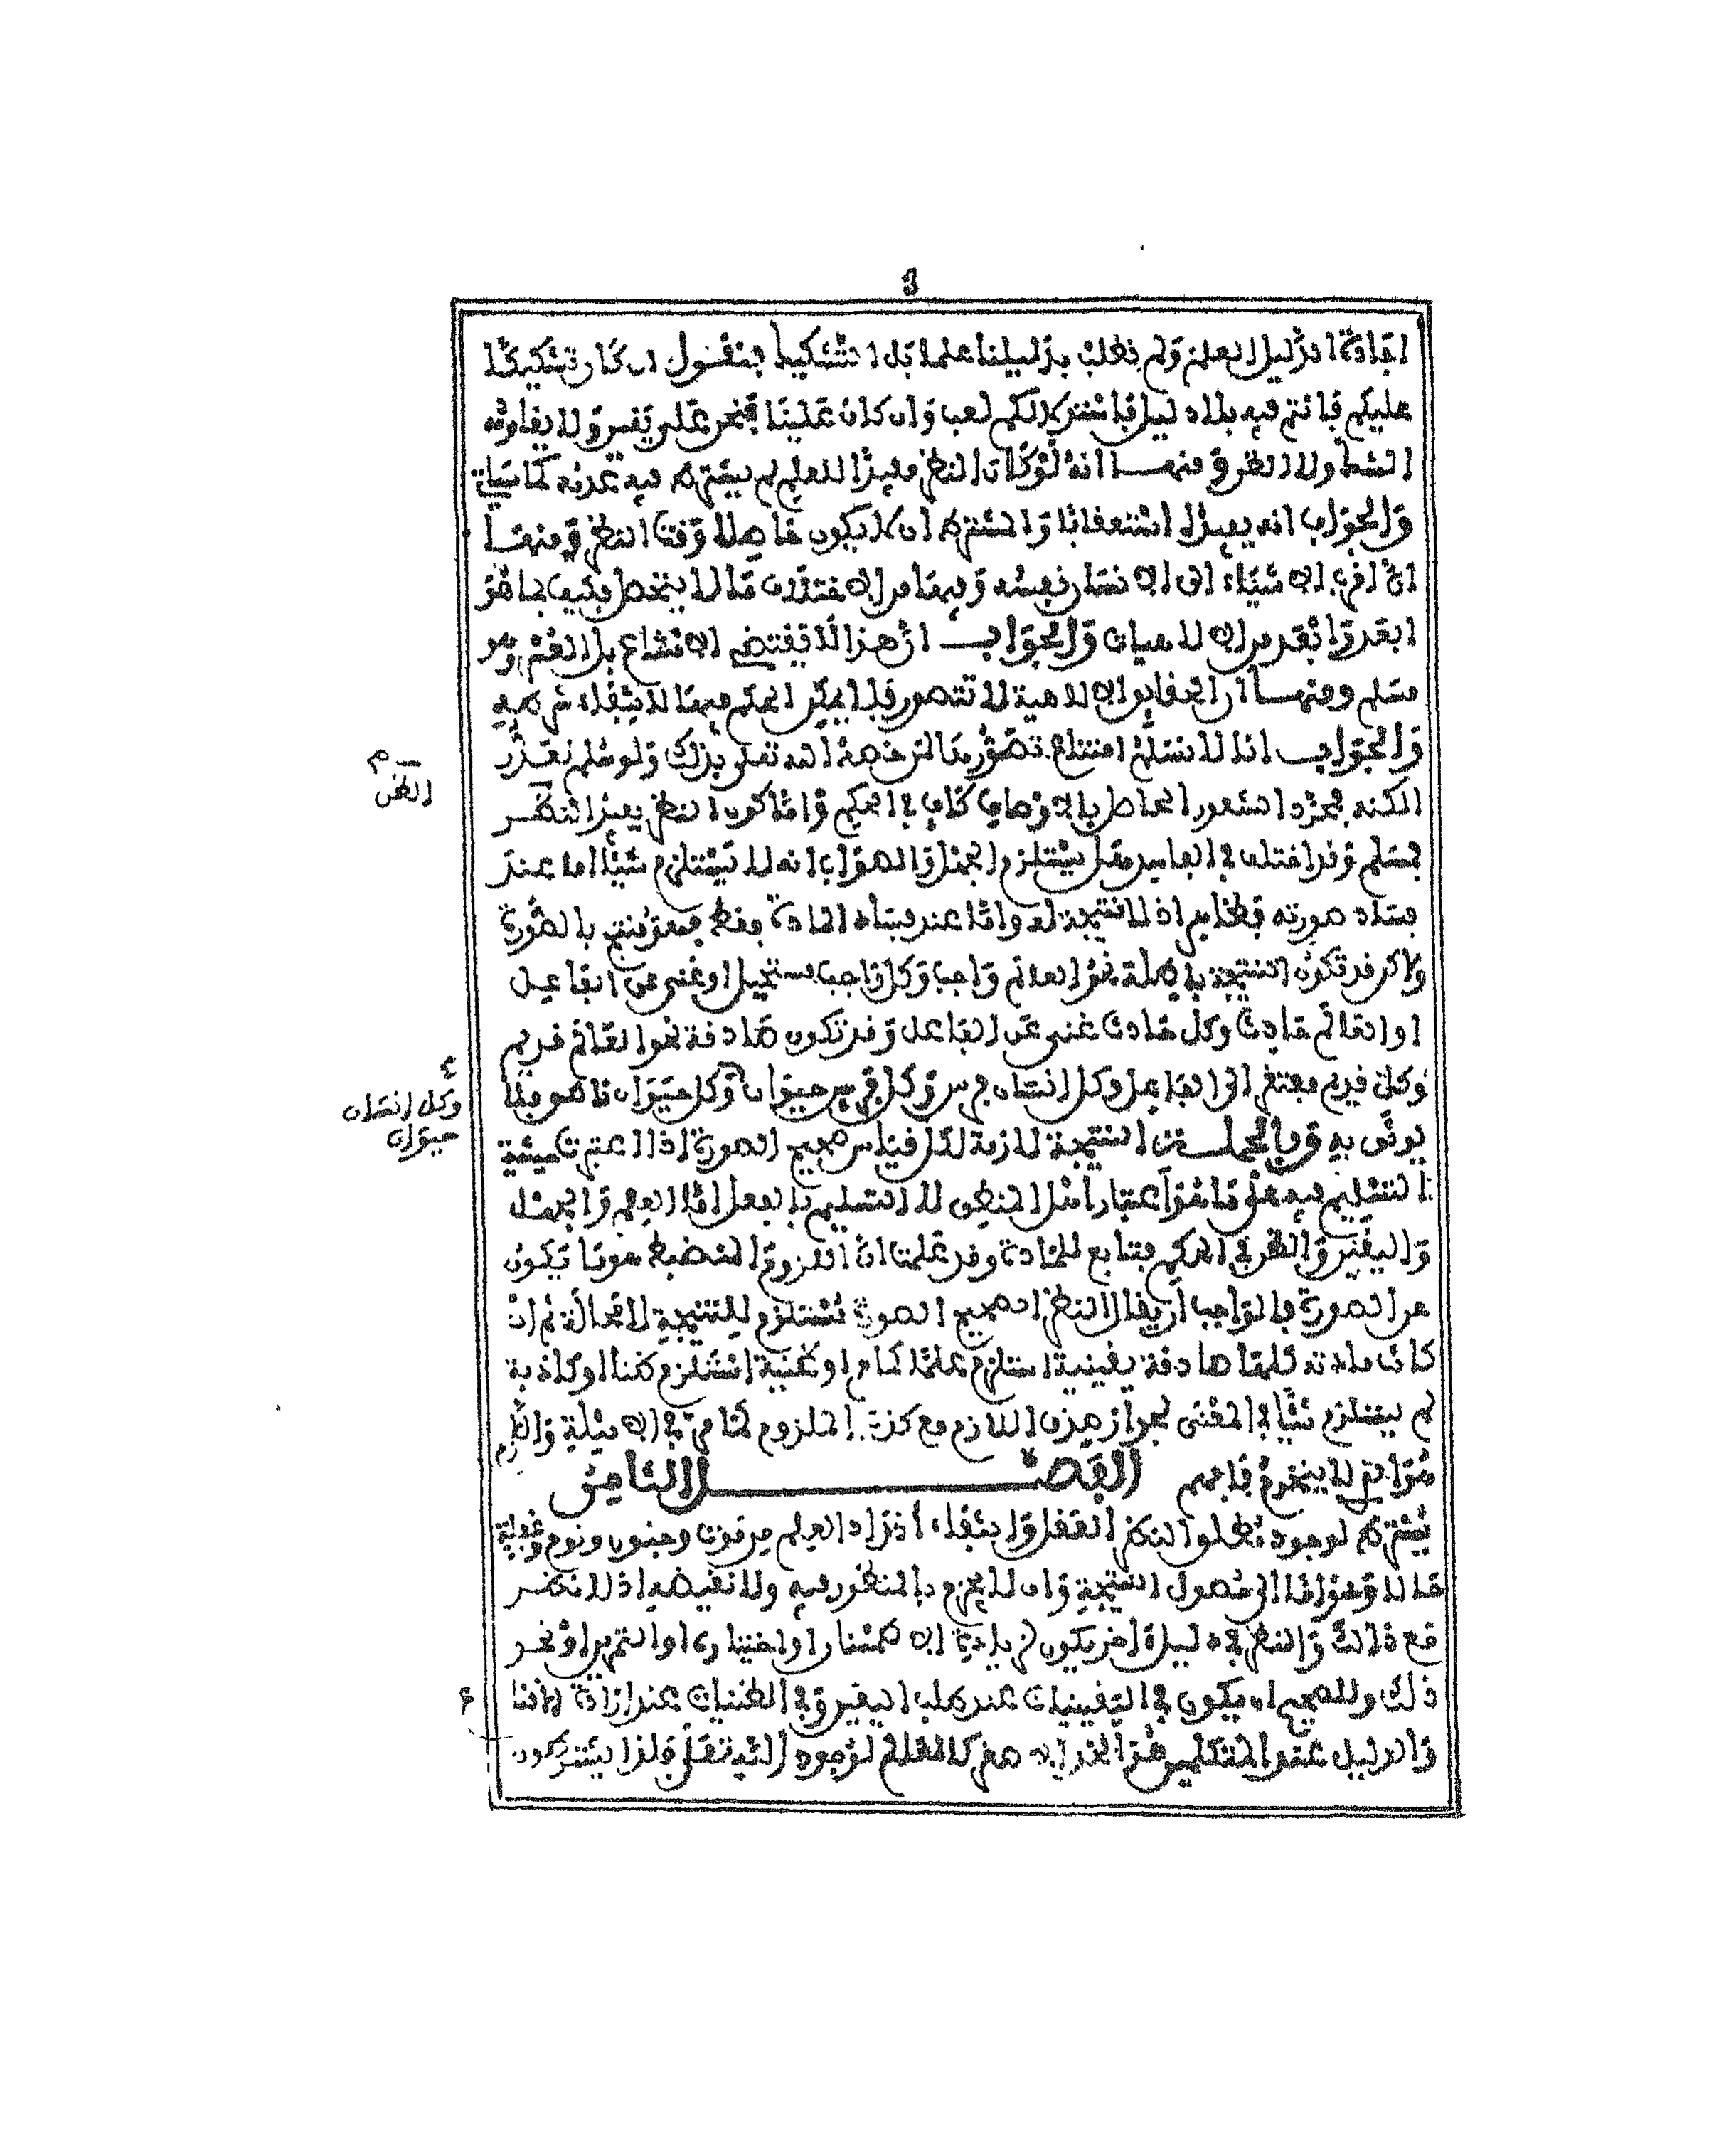 افادة الدليل العلم ولم نطلب بدليلنا علما بل التشكيك فنقول ان كان تشكيكا
عليكم فانتم فيه بلا دليل فاشتراكم لعب وان كان علينا فنحن على يقين ولا يقاومه
الشك ولا الظن ومنها انه لو كان النظر مفيدا للعلم لم يشترط فيه عدمه كما سياتي
والجواب انه يفيد استعقابا والمشترط ان لا يكون حاصلا وقت النظر ومنها
ان اقرب الاشياء الى الانسان نفسه وفيها من الاختلاف ما لا ينحصر فكيف بما هو
ابعد وابعد من الالاهيات والجواب ان هذا لا يقتضي الامتناع بل العسر وهو
مسلم ومنها ان الحقايق الالاهية لا تتصور فلا يمكن الحكم فيها لانتفاء شرطه
والجواب انا لا نسلم امتناع تصورها لمن خصه الله تعلى بذلك ولو سلم تعذر
الكنه فمجرد الشعور الحاصل بالاوصاف كاف في الحكم واما كون النظر يفيد الظن
فمسلم وقد اختلف في الفاسد هل يستلزم الجهل والصواب انه لا يستلزم شيئا اما عند
فساد صورته فظاهر اذ لا نتيجة له واما عند فساد المادة فقط فهو منتج بالصورة
ولاكن قد تكون النتيجة باطلة نحو العالم واجب وكل واجب يستحيل او غني عن الفاعل
او العالم حادث وكل حادث غني عن الفاعل وقد تكون صادقة نحو العالم قديم
وكل قديم مفتقر الى الفاعل وكل انسان فرس وكل فرس حيوان وكل حيوان ناهق فلا
يوثق به وبالجملة النتيجة لازمة لكل قياس صحيح الصورة اذا اعتبرت حيثية
التسليم فيه على ما هو اعتبار اهل المنطق لا التسليم بالفعل اما العلم والجهل
واليقين والظن في الحكم فتابع للمادة وقد علمت ان اللزوم المنضبط هو ما يكون
عن الصورة فالواجب ان يقال النظر الصحيح الصورة مستلزم للنتيجة لا محالة ثم ان
كانت مادته كلها صادقة يقينية استلزم علما كما مر او ظنية استلزم ظنا او كاذبة
لم يستلزم شيئا في المعنى لجواز صدق اللازم مع كذب الملزوم كما مر في الامثلة واللزوم
هو انه لا ينخرم فافهم الفصل الثامن
يشترط لوجود مطلق النظر العقل وانتفاء اضداد العلم من موت وجنون ونوم وغفلة
حالا وهو اما الى حصول النتيجة وان لا يجزم بالمنظور فيه ولا نقيضه اذ لا نظر
مع ذلك والنظر في دليل اخر يكون لزيادة الاستظهار او اختباره او التمرين او نحو
ذلك وللصحيح ان يكون في اليقينيات عند طلب اليقين وفي الظنيات عند ارادة الظن
والدليل عند المتكلمين هو كالعالم لوجود الله تعلى فلذا يشترطون
الظن
وكل انسان
حيوان